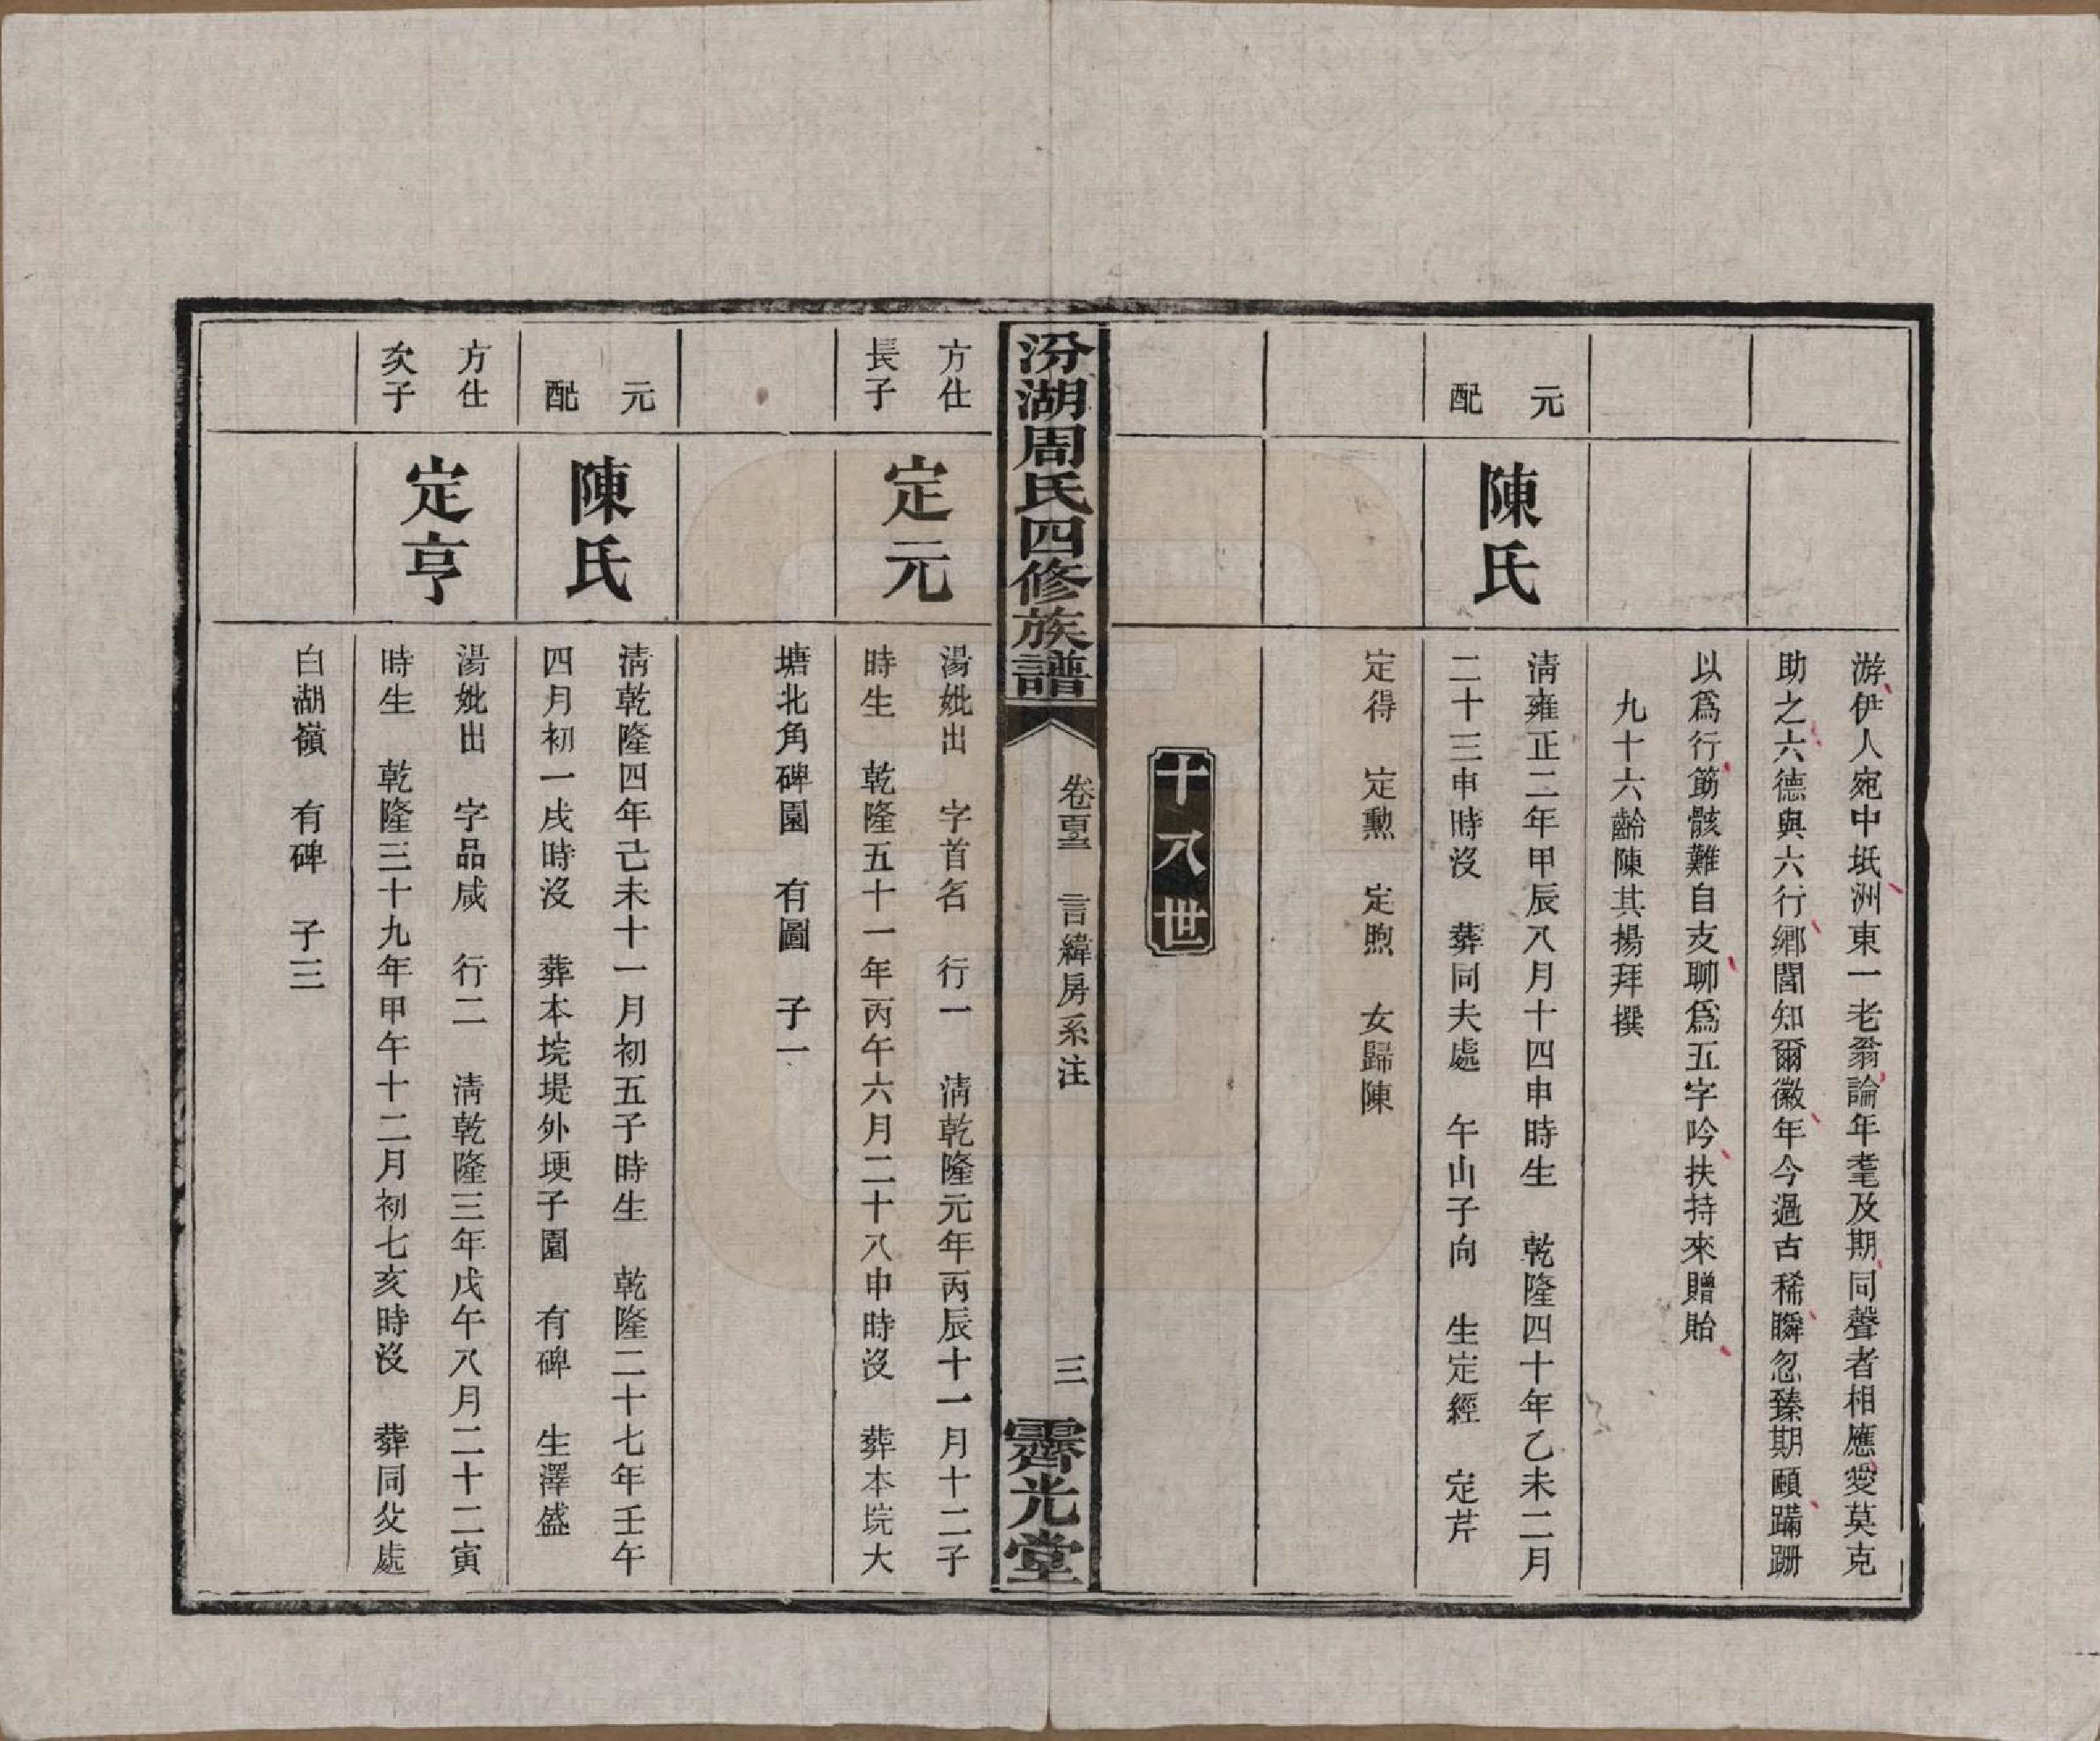 游伊人宛中坻洲東一老翁論年耄及期同聲者相應愛莫克
助之六德與六行鄉閭知爾徽年今過古稀瞬忽臻期頤蹣跚
以爲行筋骸難自支聊爲五字吟扶持來贈貽
九十六齡陳其揚拜撰
元
配
陳氏
清雍正二年甲辰八月十四申時生　乾隆四十年乙未二月
二十三申時沒　葬同夫處　午山子向　生定經　定芹
定得　定勲　定煦　女歸陳
十八世
汾湖周氏四修族譜
言緯房系注
三
霽光堂
方仕
長子
定元
湯妣出　字首名　行一　清乾隆元年丙辰十一月十二子
時生　乾隆五十一年丙午六月二十八申時沒　葬本垸大
塘北角碑園　有圖　子一
元
配
陳氏
清乾隆四年己未十一月初五子時生　乾隆二十七年壬午
四月初一戌時沒　葬本垸堤外埂子園　有碑　生澤盛
方仕
次子
定亨
湯妣出　字品咸　行二　清乾隆三年戊午八月二十二寅
時生　乾隆三十九年甲午十二月初七亥時沒　葬同父處
白湖嶺　有碑　子三